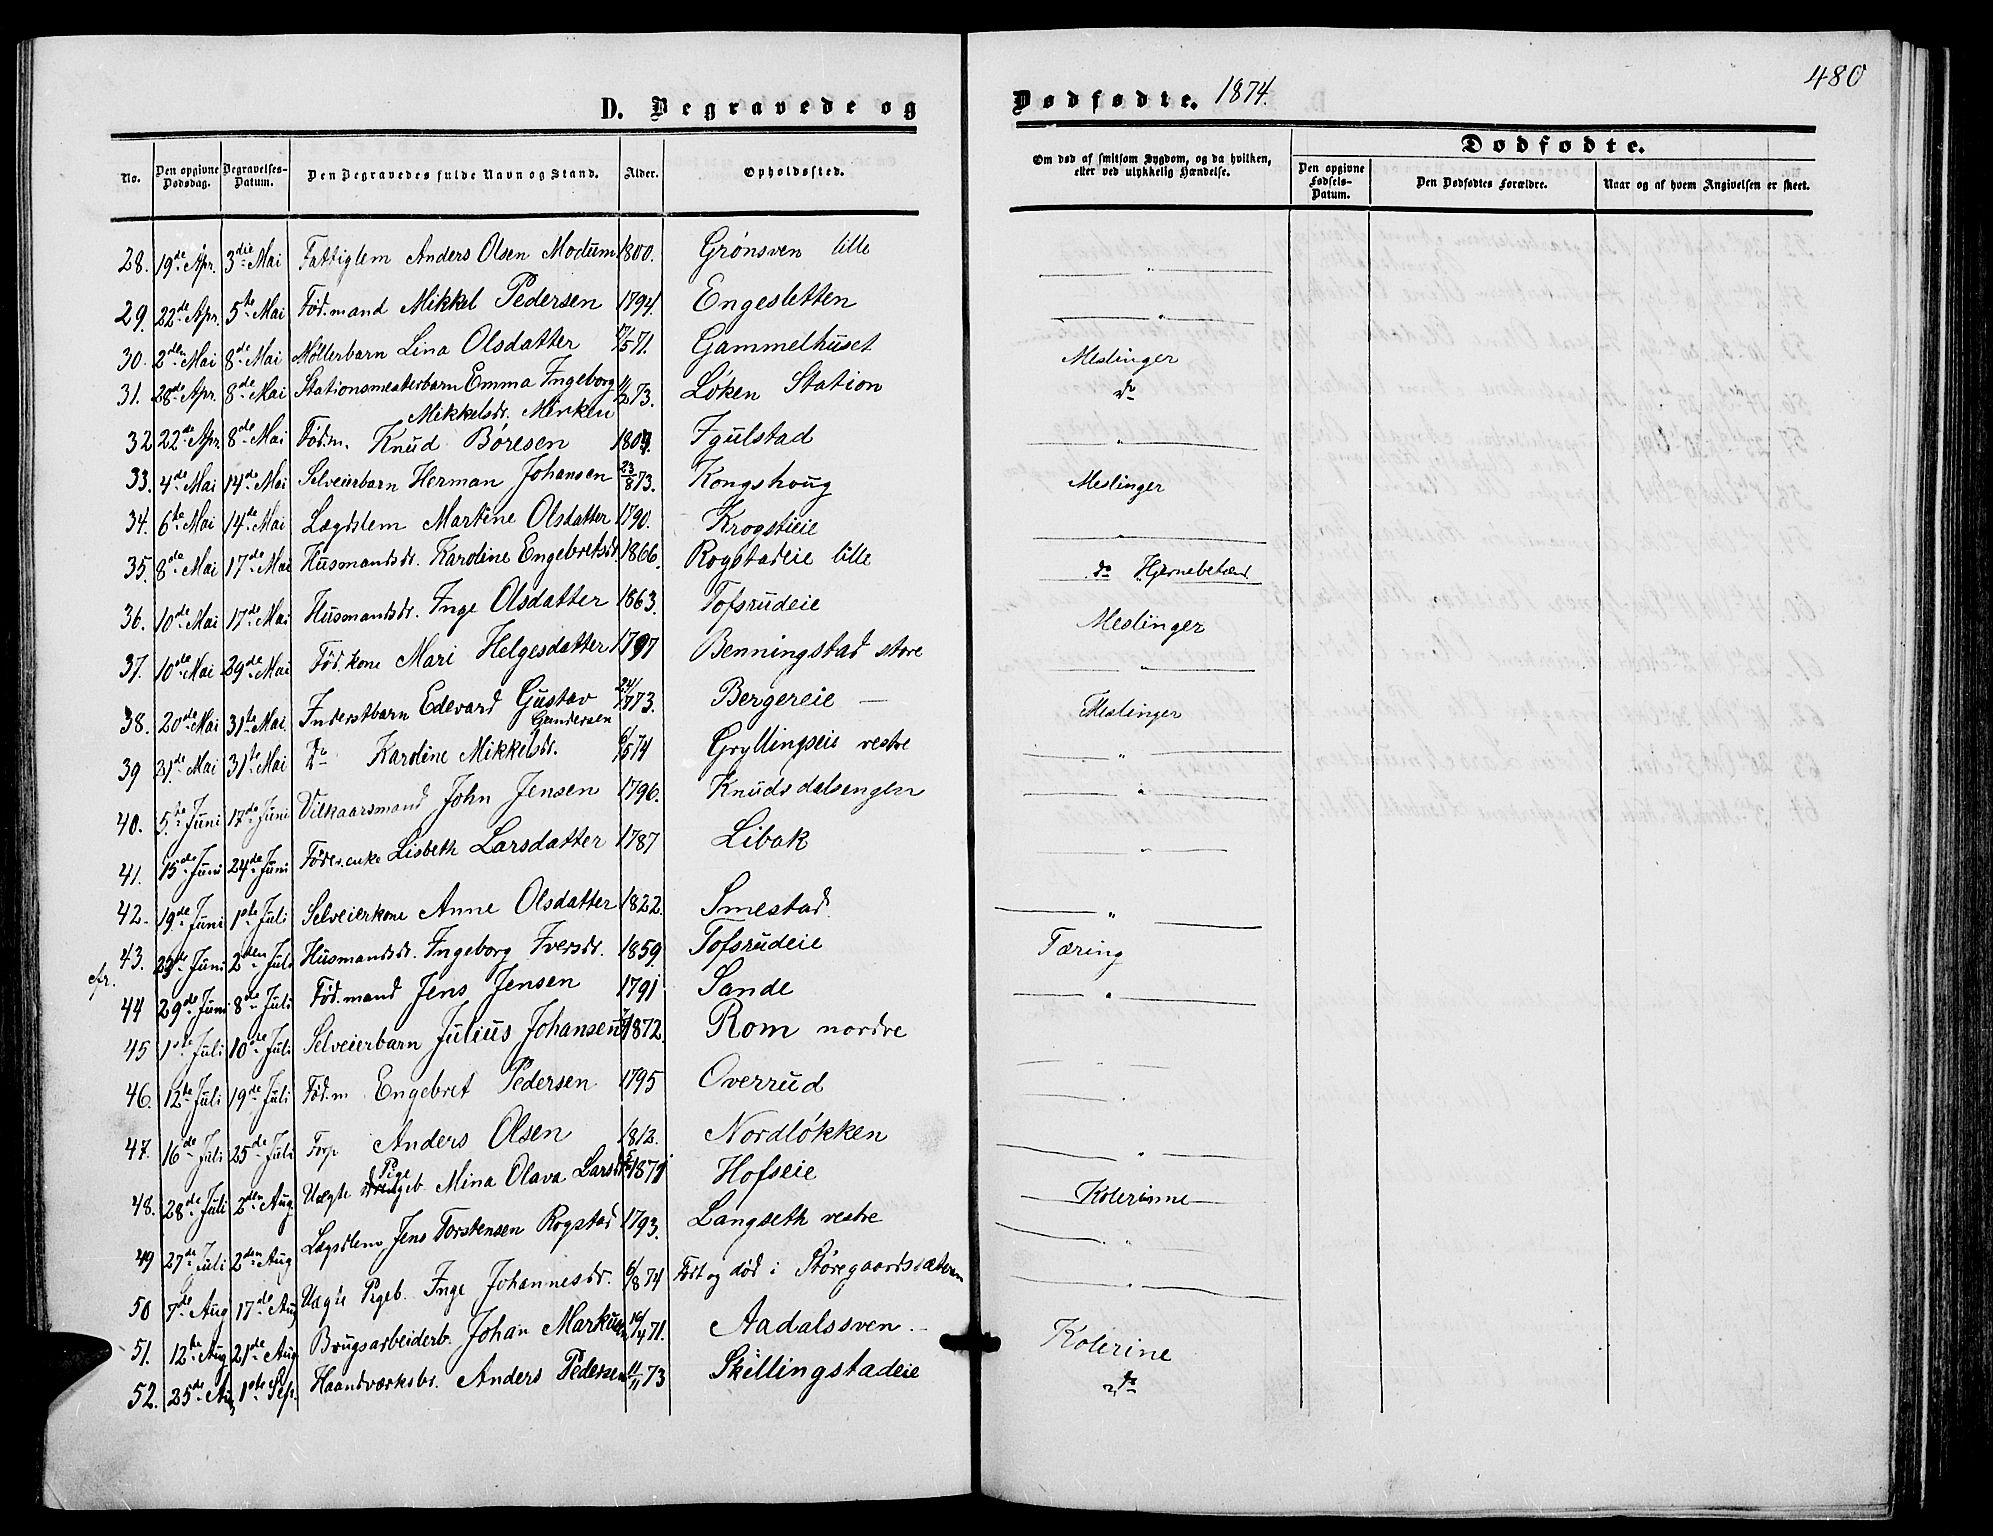 480
D. Begravede og Dødfødte. 1874.
Dødfødte.
No. Den opgivne Dødsdag. Begravelses-Datum. Den Begravedes fulde Navn og Stand. Alder. Opholdssted. Om død af smitsom Sygdom, og da hvilken, eller ved ulykkelig Hændelse. Den opgivne Fødsels-Datum. Den Dødfødtes Forældre. Naar og af hvem Angivelsen er skeet.
28. 19de Apr. 3die Mai Fattiglem Anders Olsen Modum 1800. Grønsven lille — " —
29. 22de Apr. 5te Mai Fød.mand Mikkel Pedersen 1794. Engesletten — " —
30. 2den Mai 8de Mai Møllerbarn Lina Olsdatter 17/5 71. Gammelhuset Meslinger
31. 28de Apr. 8de Mai Stationsmesterbarn Emma Ingeborg 11/2 73. Løken Station do
Mikkelsdr. Minken
32 22de Apr 8de Mai Fød.m. Knud Børesen Igulstad — " —
33. 4de Mai 14de Mai Selveierbarn Herman Johansen 23/8 73. Kongshoug Meslinger
34. 6te Mai 14de Mai Lægdslem Martine Olsdatter 1790. Krogstieie — " —
35. 8de Mai 17de Mai Husmandsdr. Karoline Engebretsdr. 1866. Rogstadeie lille do Hjernebetænd
36. 10de Mai 17de Mai Husmandsdr. Inge Olsdatter 1863. Tofsrudeie Meslinger
37. 10de Mai 29de Mai Fød.kone Mari Helgesdatter 1797 Benningstad store — " —
38. 20de Mai 31te Mai. Inderstbarn Edevard Gustav 24/7 73. Bergereie — Meslinger
Gundersen
39 31te Mai 31te Mai do Karoline Mikkelsdr. 6/5 74 Gryllingseie vestre — " —
40. 5te Juni 17de Juni Vilkaarsmand John Jensen 1796. Knudsdalsengen — " —
41. 15de Juni 24de Juni Føder.enke Lisbeth Larsdatter 1787 Libak — " —
42. 19de Juni 1ste Juli Selveierkone Anne Olsdatter 1822. Smestad. — " —
43. 23de Juni 2den Juli Husmandsdr. Ingeborg Iversdr. 1859. Tofsrudeie Tæring
cfr.
44 29de Juni 8de Juli Fød.mand Jens Jensen 1791 Sande — " —
45 1ste Juli 10de Juli Selveierbarn Julius Johansen 1872. Rom nordre — " —
46. 12te Juli 19de Juli Fød.m Engebret Pedersen 1795 Overrud — " —
47. 16de Juli 25de Juli Forp Anders Olsen 1812. Nordløkken — " —
48. 28de Juli 2den Aug. Uægte Pigeb Mina Olava Larsdr 1871 Hofseie Kolerinne
49 27de Juli 2den Aug Lægdslem Jens Torstensen Rogstad 1793. Langseth vestre — " —
50 7de Aug 17de Aug Uægte Pigeb. Inge Johannesdr. 6/8 74 Født og død i Støregaardssæteren — " —
51. 12te Aug 21de Aug Brugsarbeiderb. Johan Markus 19/4 71. Aadalssven. — Kolerine
52. 25de Aug 1ste Sep. Haandværksbr. Anders Pedersen 11/11 73 Skillingstadeie do